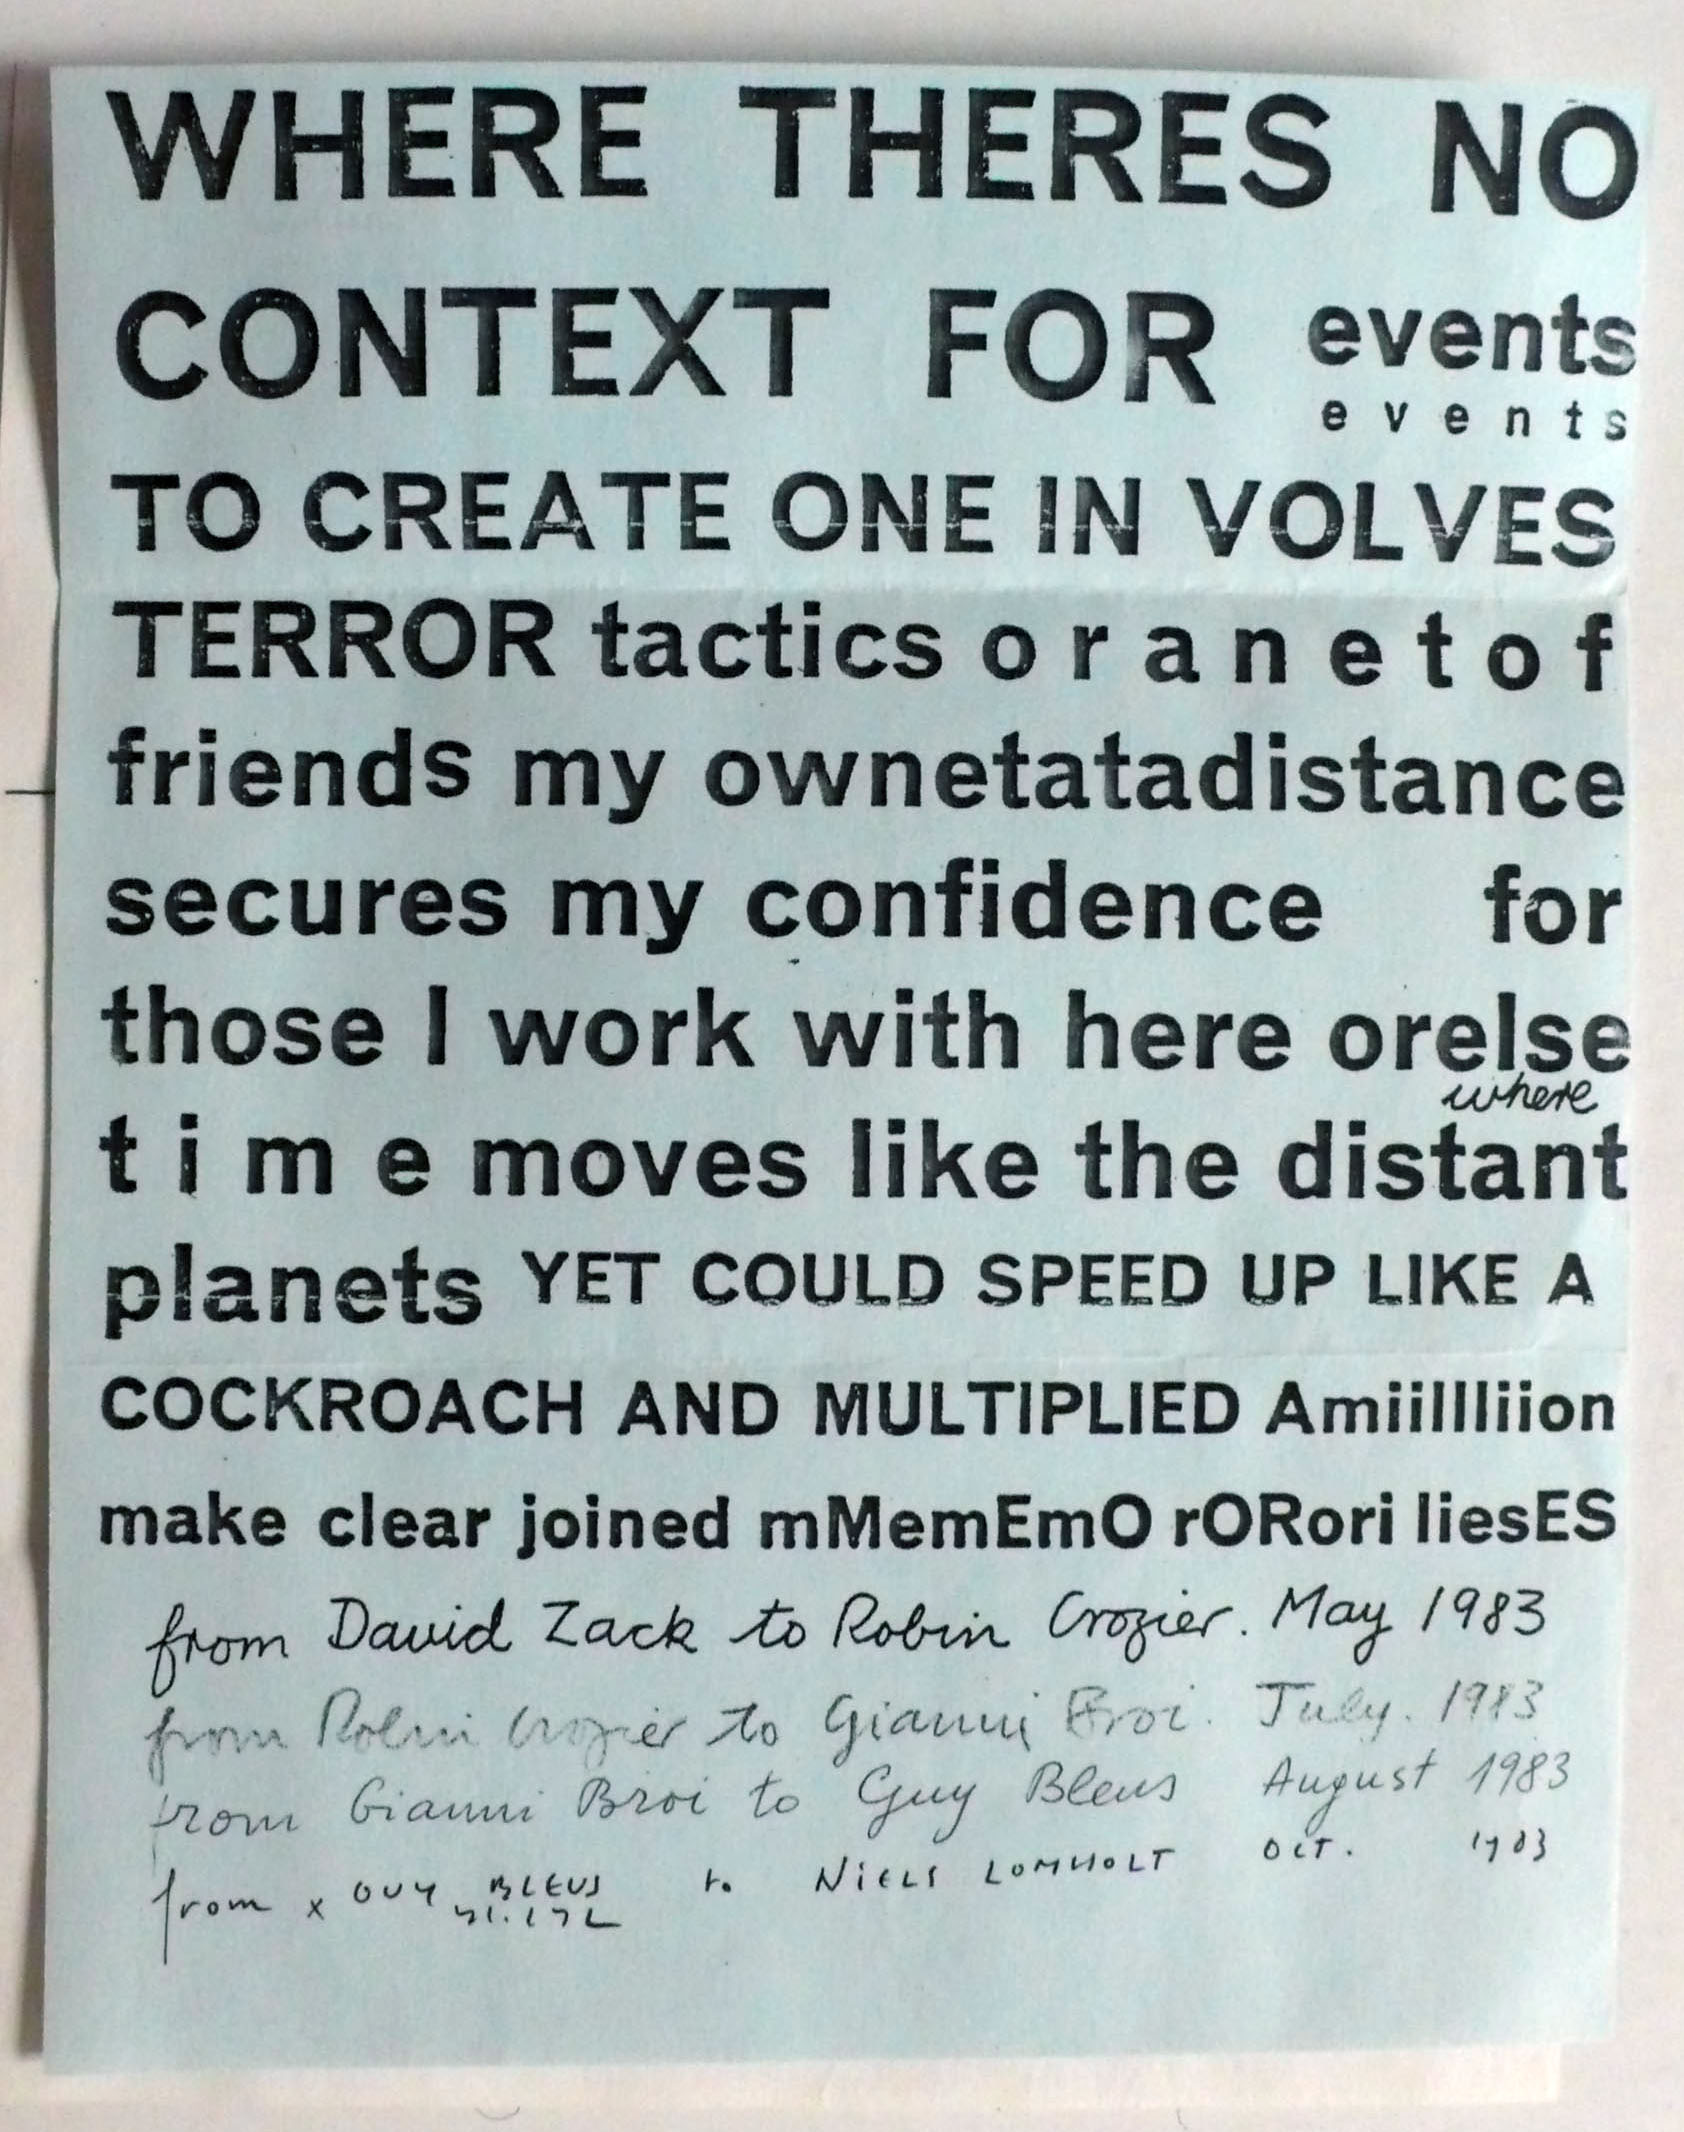 WHERE THERES NO
CONTEXT FOR events
e v e n t s
TO CREATE ONE IN VOLVES
TERROR tactics o r a n e t o f
friends my ownetatadistance
secures my confidence for
those I work with here orelse
where
t i m e moves like the distant
planets YET COULD SPEED UP LIKE A
COCKROACH AND MULTIPLIED Amiillliiion
make clear joined mMemEmO rORori liesES
from David Zack to Robin Crozier. May 1983
from Robin Crozier to Gianni Broi. July. 1983
from Gianni Broi to Guy Bleus August 1983
from x GUY BLEUS to NIELS LOMHOLT OCT. 1983